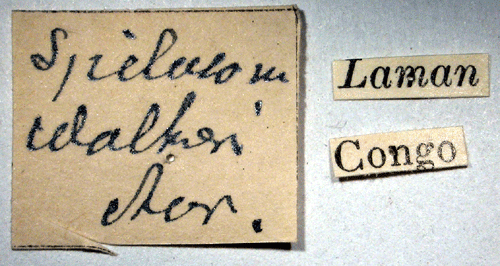 Spilosom
Walkeri
Aur.
Laman
Congo